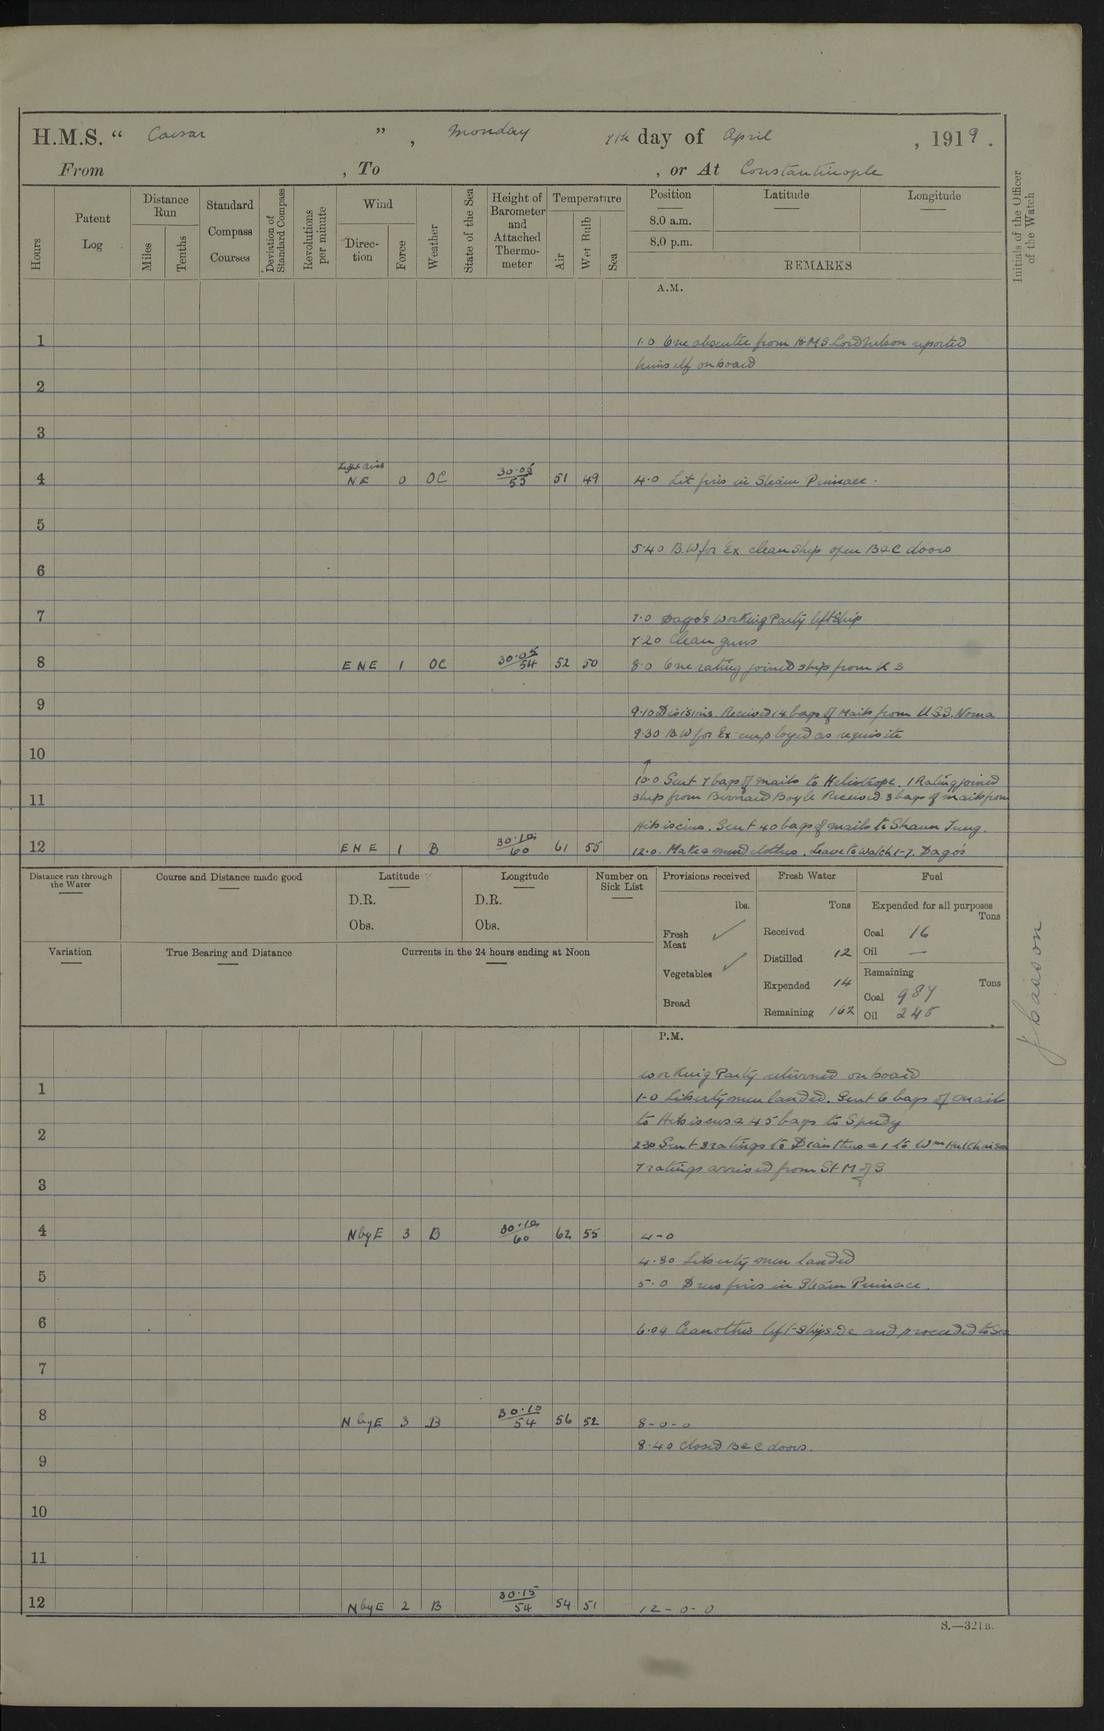 H.M.S. “ Caesar ” , Monday 7th day of April , 1919 .
From , To , or At Constantinople
Hours
Patent Log
Distance Run
Miles
Tenths
Standard Compass Courses
Deviation of Standard Compass
Revolutions per minute
Wind
Direction
Force
Weather
State of the Sea
Height of Barometer and Attached Thermometer
Temperature
Air
Wet Bulb
Sea
Position
Latitude
Longitude
8.0 a.m.
8.0 p.m.
REMARKS
Initials of the Officer of the Watch
A.M.
1 1.0 One absentee from HMS Lord Nelson reported
himself onboard
2
3
Light airs
4 NE 0 OC 30.05/53 51 49 4.0 Lit fires in Steam Pinnace.
5
5.40 B.W for Ex clean ship open B&C doors
6
7 7.0 Dago's working Party left ship
7.20 Clean guns
8 ENE 1 OC 30.05/54 52 50 8.0 One rating joined ship from R S
9 9.10 Divisions. Received 14 bags of mails from U.S.S. Noma
9.30 B.W for Ex employed as requisite
10
10.0 Sent 7 bags of mails to Heliotrope. 1 Rating joined
11 ship from Bernard Boyle Received 3 bags of mails from
Hibiscius. Sent 40 bags of mails to Shaun Tung.
12 ENE 1 B 30.10/60 61 55 12.0. Make & mend clothes. Leave to watch 1-7. Dago's
Distance run through the Water
Course and Distance made good
Latitude
D.R.
Obs.
Longitude
D.R.
Obs.
Number on Sick List
Provisions received
lbs.
Fresh Meat ✓
Vegetables ✓
Bread
Fresh Water
Tons
Received
Distilled 12
Expended 14
Remaining 162
Fuel
Expended for all purposes
Tons
Coal 16
Oil —
Remaining
Tons
Coal 987
Oil 245
Variation
True Bearing and Distance
Currents in the 24 hours ending at Noon
P.M.
working Party returned onboard
1 1-0 Libertymen landed. Sent 6 bags of mails
to Hibiscus & 45 bags to Speedy
2 2.30 Sent 3 ratings to & 1 to Wm Hutchinson
7 ratings arrived from St M of S
3
4 NbyE 3 B 30.10/60 62 55 4-0
4.30 Liberty men landed
5 5.0 Drew fires in Steam Pinnace.
6 6.04 Ceanothus left shipside and proceeded to Sea
7
8 NbyE 3 B 30.10/54 56 52 8-0-0
8.40 Closed B&C doors.
9
10
11
12 NbyE 2 B 30.15/54 54 51 12-0-0
S.—321B.